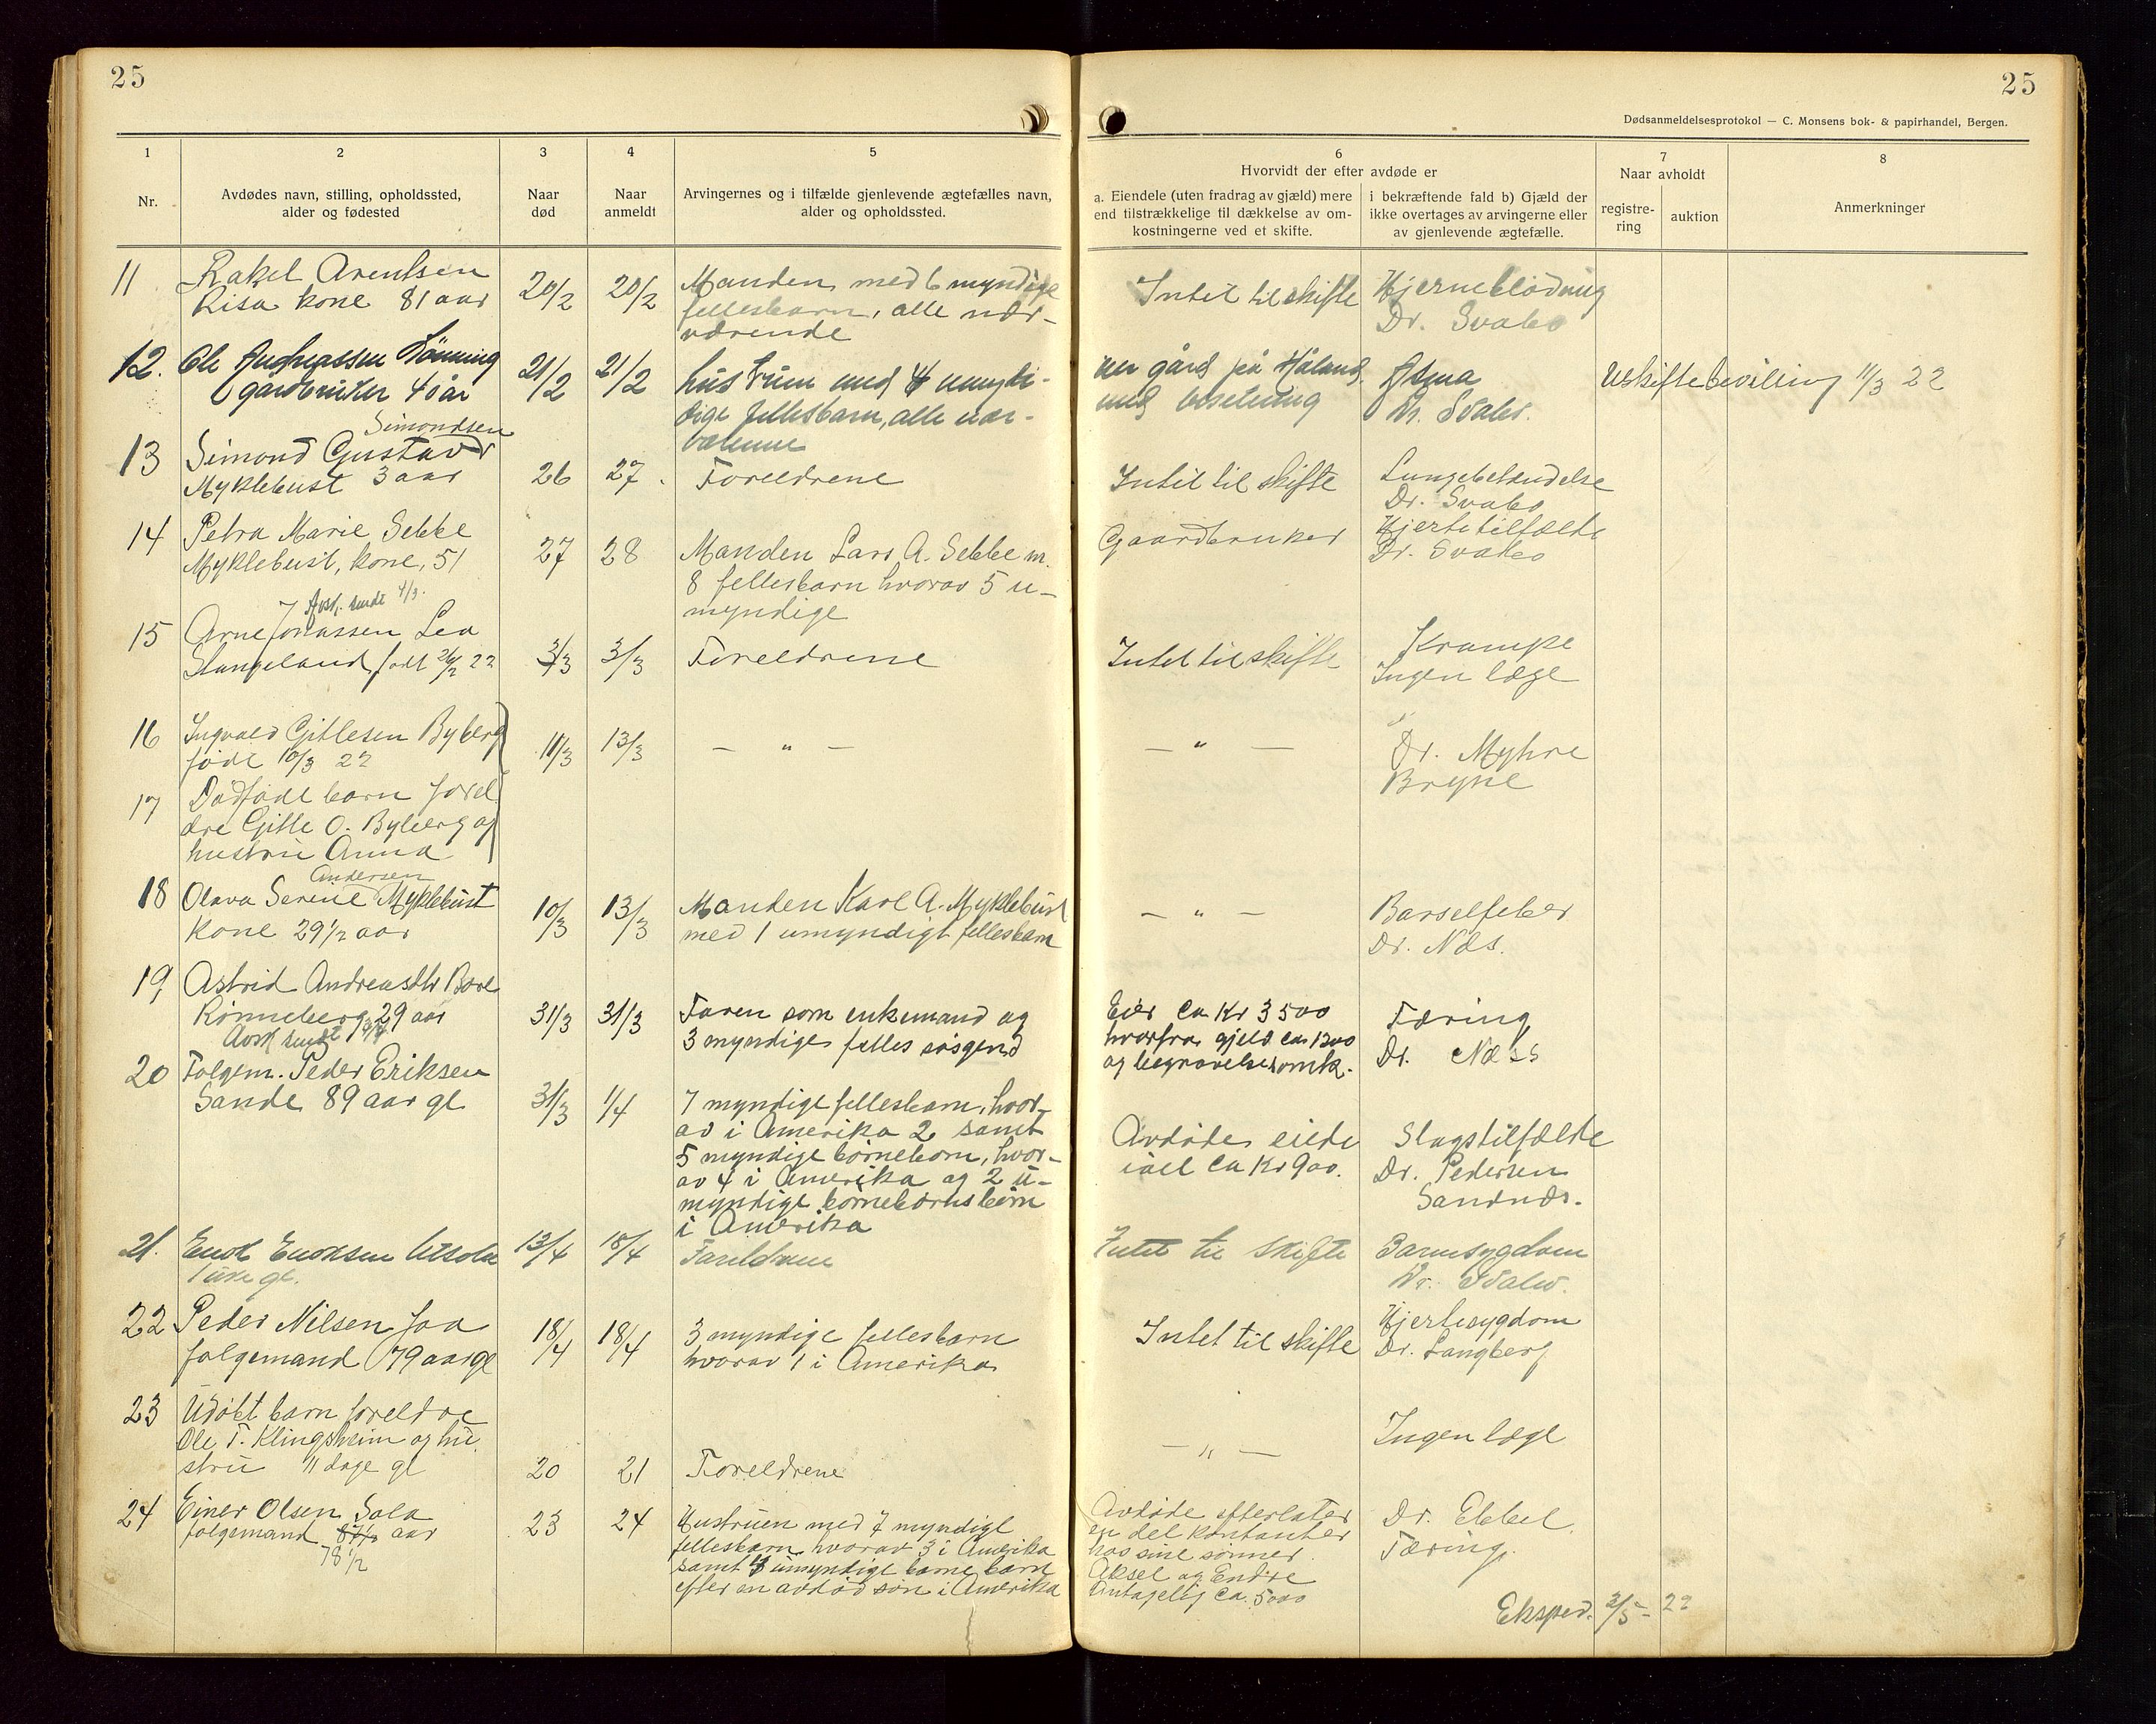 25
25
Dødsanmeldelsesprotokol — C. Monsens bok- & papirhandel, Bergen.
1
Nr.
2
Avdødes navn, stilling, opholdssted,
alder og fødested
3
Naar
død
4
Naar
anmeldt
5
Arvingernes og i tilfælde gjenlevende ægtefælles navn,
alder og opholdssted.
6
Hvorvidt der efter avdøde er
a. Eiendele (uten fradrag av gjæld) mere
end tilstrækkelige til dækkelse av om-
kostningerne ved et skifte.
i bekræftende fald b) Gjæld der
ikke overtages av arvingerne eller
av gjenlevende ægtefælle.
7
Naar avholdt
registre-
ring
auktion
8
Anmerkninger
11
Rakel Arentsen
Risa kone 81 aar
20/2
20/2
Manden med 6 myndige
fellesbarn, alle nær-
værende
Intet til skifte
Hjerneblödning
Dr. Svabo
12.
Ole Lönning
gårdbruker 40 år
21/2
21/2
hustruen med 4 umyn-
dige fellesbarn, alle nær-
værende
en gård på Håland
med besetning
Astma
Dr. Svabo.
Uskiftebevilling 11/3 22
13
Simondsen
Simond Gustav
Myklebust 3 aar
26
27.
Foreldrene
Intet til skifte
Lungebetændelse
Dr. Svabo
14
Petra Marie Sebbe
Myklebust, kone, 51
27
28
Manden Lars A. Sebbe m.
8 fellesbarn hvorav 5 u-
myndige
Gaardbruker
Hjertetilfælde
Dr. Svabo
Avsk. sendt 4/3.
15
Arne Jonassen Lea
Stangeland født 26/2 22
3/3
3/3
Foreldrene
Intet til skifte
Krampe
Ingen læge
16
Ingvald Gitlesen Byberg
født 10/3 22
11/3
13/3
— " —
— " —
Dr. Myhre
Bryne
17
Dødfødt barn forel
dre Gitle O. Byberg og
hustru Anna
18
Andersen
Olava Serine Myklebust
Kone 29 1/2 aar
10/3
13/3
Manden Karl A. Myklebust
med 1 umyndigt fellesbarn
— " —
Barselfeber
Dr. Næs.
19
Astrid Andreasdtr Bore
Rönneberg 29 aar
Avsk sendt
31/3
31/3
Faren som enkemand og
3 myndige felles søsgend
Eier ca Kr 3500
hvorfra gjeld ca 1200
og begravelsesomk.
Tæring
Dr. Næss
20
Folgem. Peder Eriksen
Sande 89 aar gl
31/3
1/4
7 myndige fellesbarn, hvor-
av i Amerika 2 samt
5 myndige börnebörn, hvor-
av 4 i Amerika og 2 u-
myndige börnebörnsbörn
i Amerika
Avdöde eiede
ialt ca Kr 900.
Slagstilfælde
Dr. Pedersen
Sandnæs.
21.
Enok Enoksen Utsola
1 uke gl.
13/4
18/4
Foreldrene
Intet til skifte
Barnsygdom
Dr. Svabo.
22
Peder Nilsen Joa
folgemand 79 aar gl
18/4
18/4
3 myndige fellesbarn
hvorav 1 i Amerika
Intet til skifte
Hjertesygdom
Dr. Langberg
23
Udöbt barn foreldre
Ole T. Klingsheim og hu
stru 11 dage gl
20
21
Foreldrene
— " —
Ingen læge
24
Einer Olsen Sola
folgemand aar
78 1/2
23
24
Hustruen med 7 myndige
fellesbarn hvorav 3 i Amerika
samt 4 umyndige barnebarn
efter en avdöd sön i Amerika
Avdöde efterlater
en del kontanter
hos sine sönner
Aksel og Endre
Antagelig ca. 5000
Dr. Ebbel
Tæring.
Eksped. 2/5 - 22